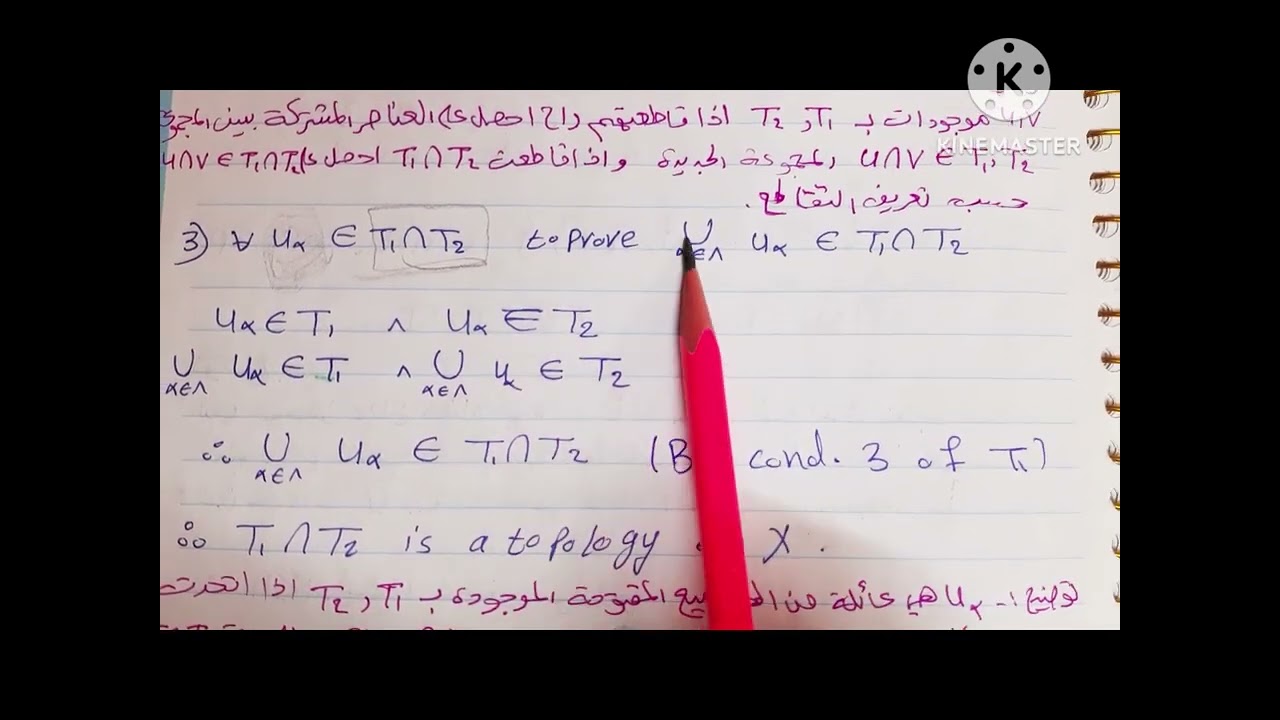 K
KINEMASTER
موجودات بـ T₁ و T₂ اذا قاطعتهم راح احصل على العناصر المشتركة بين
U∩V ∈ T₁, T₂ المجموعة الجديدة واذا قاطعت T₁∩T₂ احصل على U∩V ∈ T₁∩T₂
حسب تعريف التقاطع.
3) ∀ Uα ∈ T₁∩T₂ to prove ∪ α∈Λ Uα ∈ T₁∩T₂
Uα ∈ T₁ ∧ Uα ∈ T₂
∪ α∈Λ Uα ∈ T₁ ∧ ∪ α∈Λ Uα ∈ T₂
∴ ∪ α∈Λ Uα ∈ T₁∩T₂ (B cond. 3 of T₁)
∴ T₁∩T₂ is a topology X.
توضيح :- Uα هي عائلة من المفتوحة الموجودة بـ T₁ و T₂ اذا اتحدت